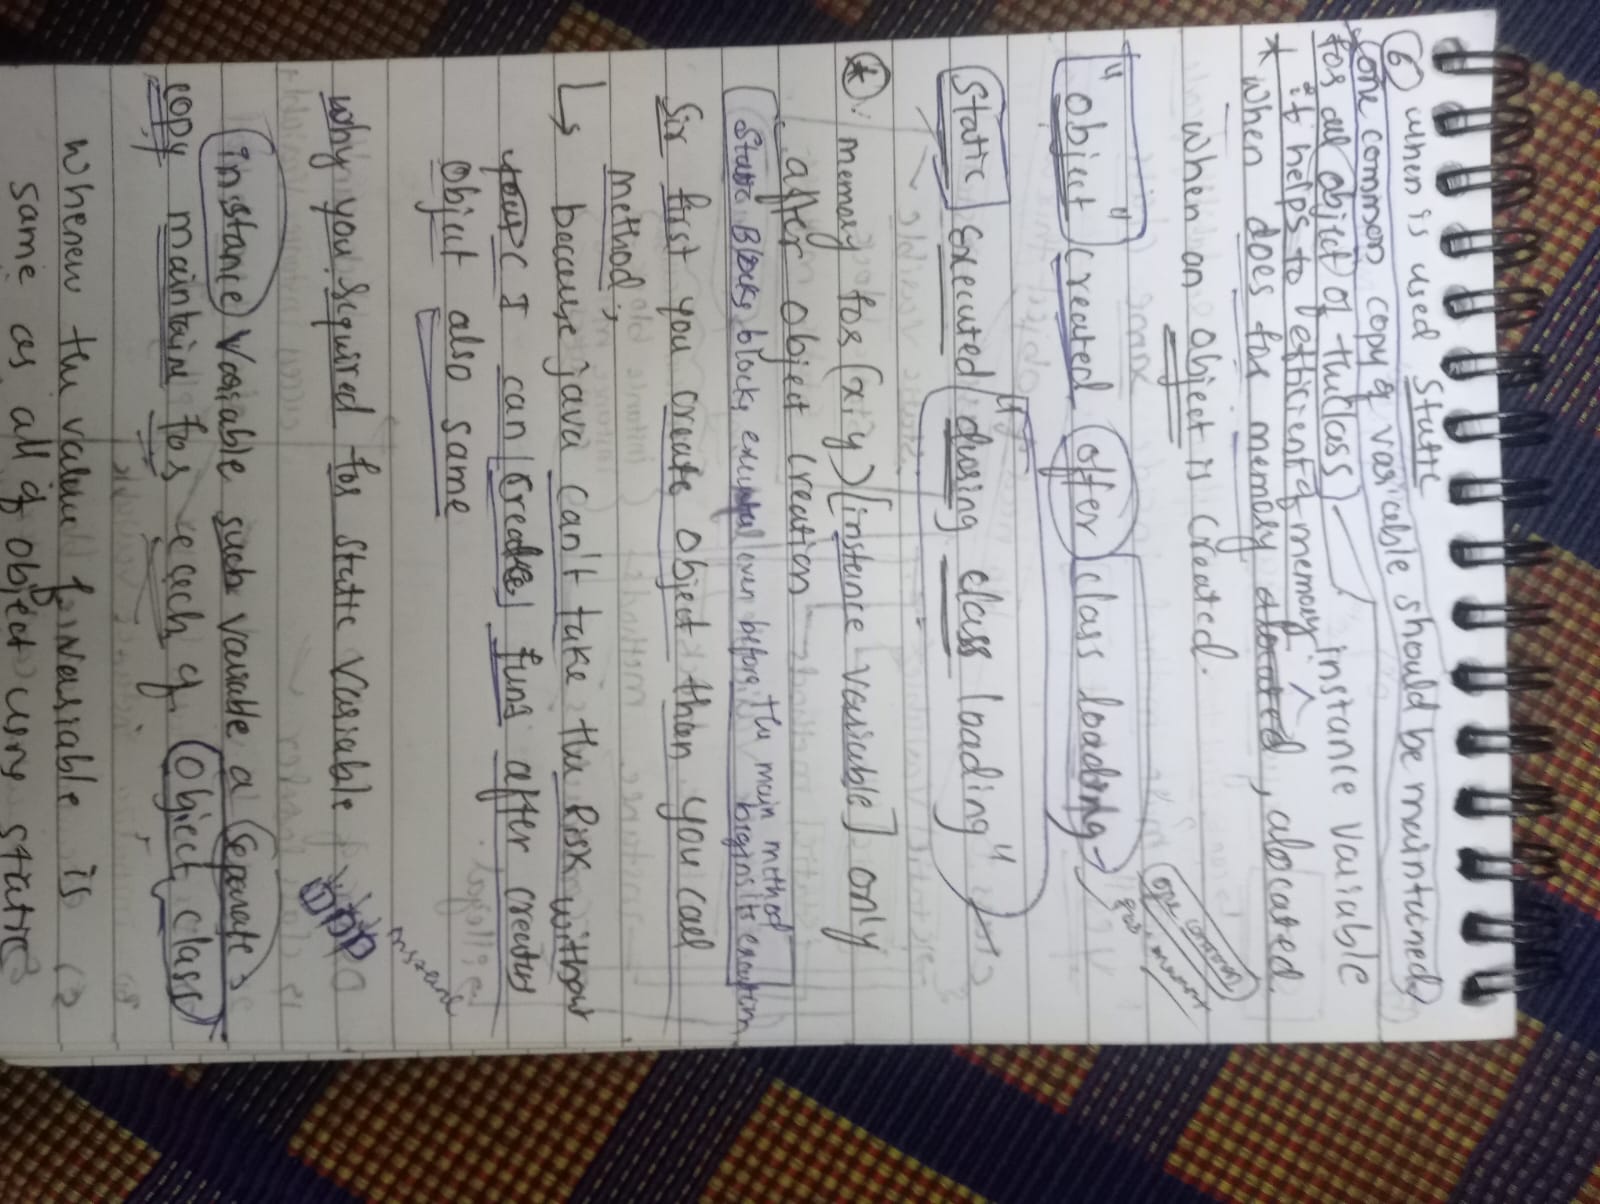 6) when is used static
one common copy of variable should be maintained
for all object of the class)
* it helps to efficient of memory
instance variable
when does for memory allocated, alocated
when an object is created.
"object" created after class loading
one common
Static executed "during class loading"
*: memory for (x,y) [instance variable] only
after object creation
Static Blocks block, executed even before the main method begins its execution
Sir first you create object than you call
method;
↳ because java can't take the Risk without
your C I can create func after creates
object also same
why you required for static variable
instance
instane Variable such variable a separate
copy maintain for each of object class
whenever the value of variable is
same as all of object using static